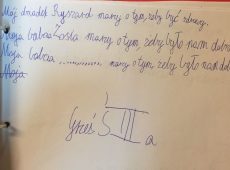 Mój dziadek Ryszard marzy o tym, żeby być zdrowy.
Moja babcia Zosia marzy o tym, żeby było nam dobrze
Moja babcia .................. marzy o tym, żeby było nam dob
Moja
Grześ
a